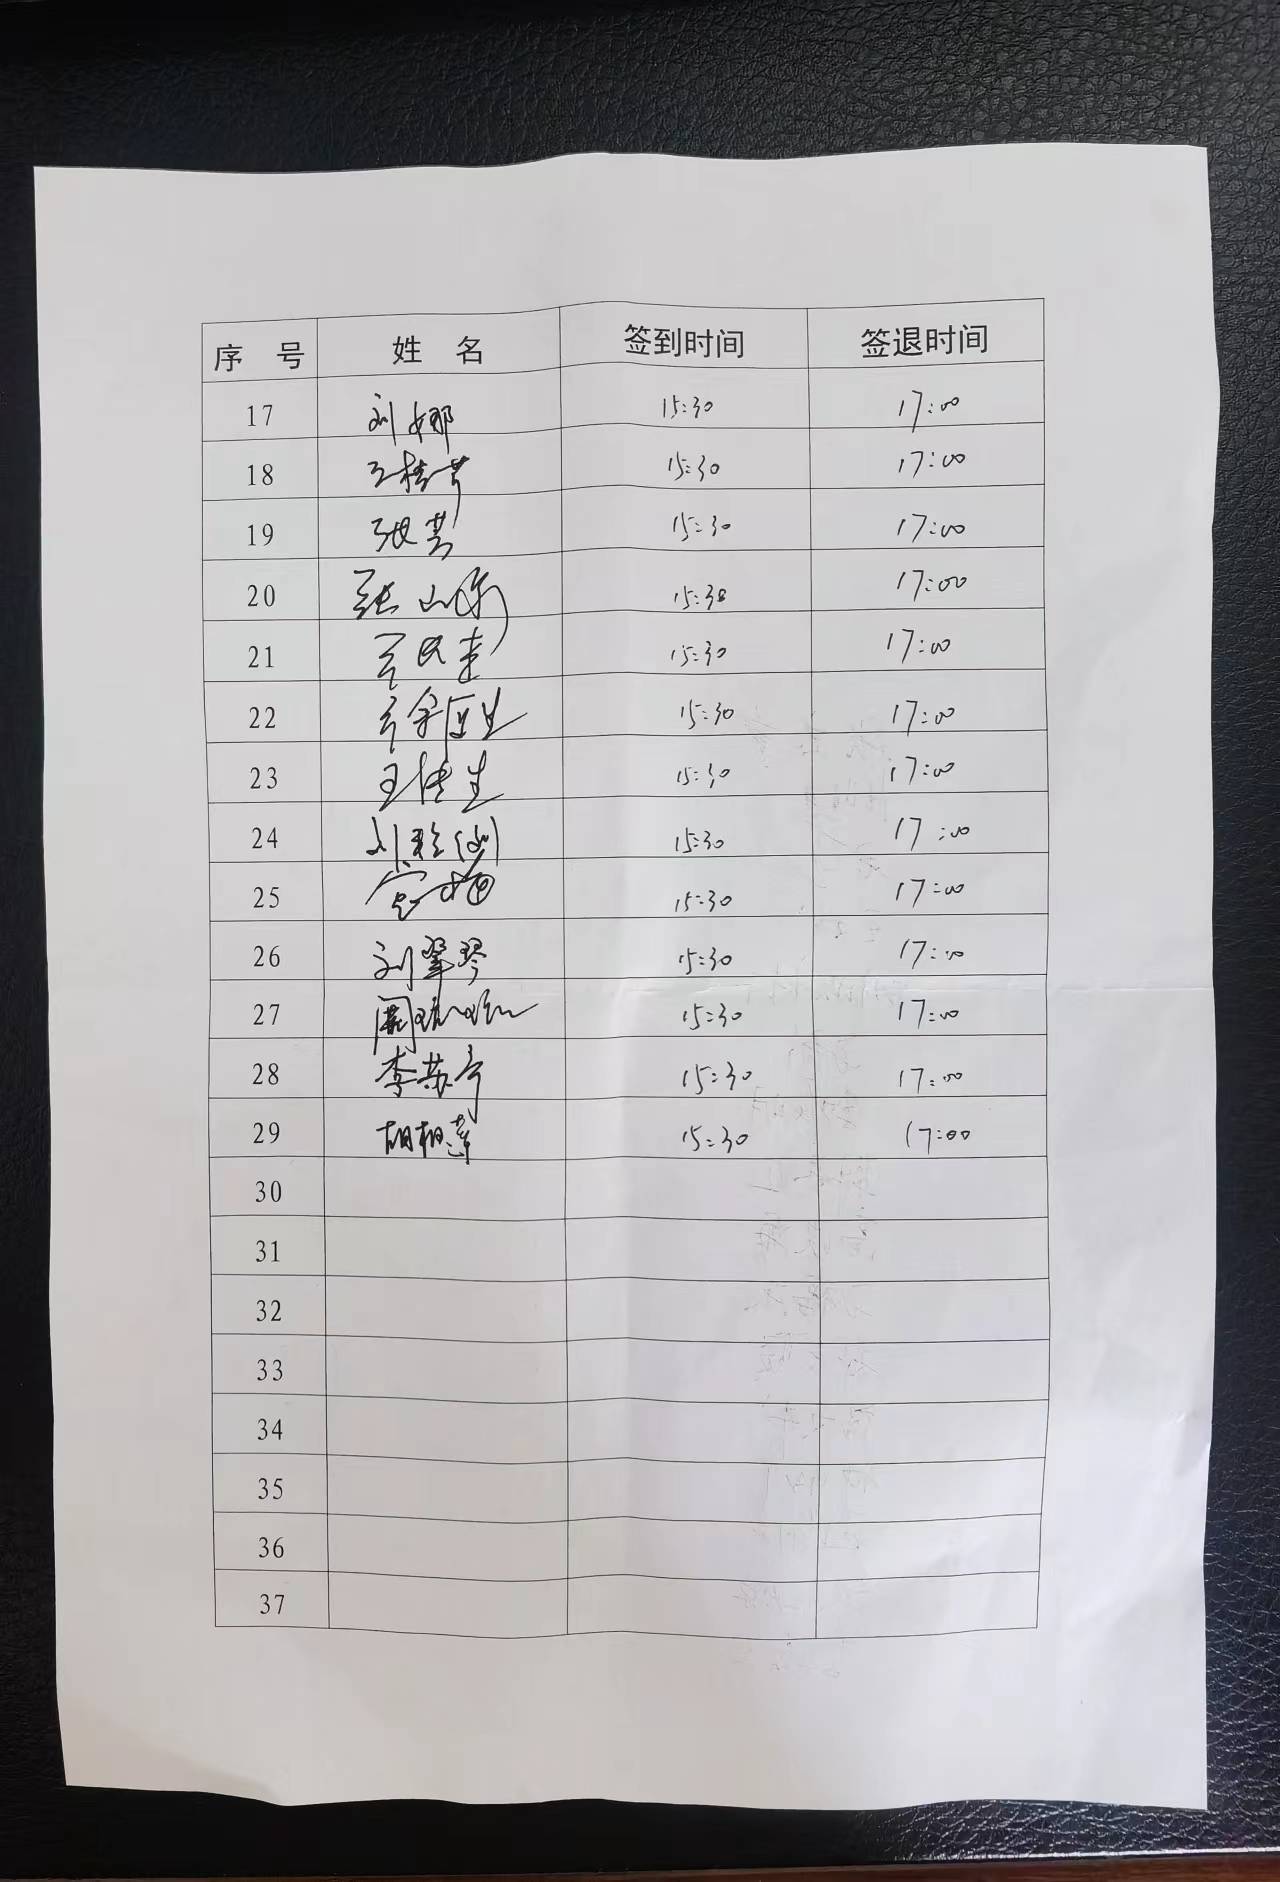 序 号 姓 名 签到时间 签退时间
17 刘娜 15:30 17:00
18 15:30 17:00
19 张芳 15:30 17:00
20 15:30 17:00
21 15:30 17:00
22 15:30 17:00
23 15:30 17:00
24 15:30 17:00
25 15:30 17:00
26 刘翠琴 15:30 17:00
27 15:30 17:00
28 李苏宁 15:30 17:00
29 胡相莲 15:30 17:00
30
31
32
33
34
35
36
37